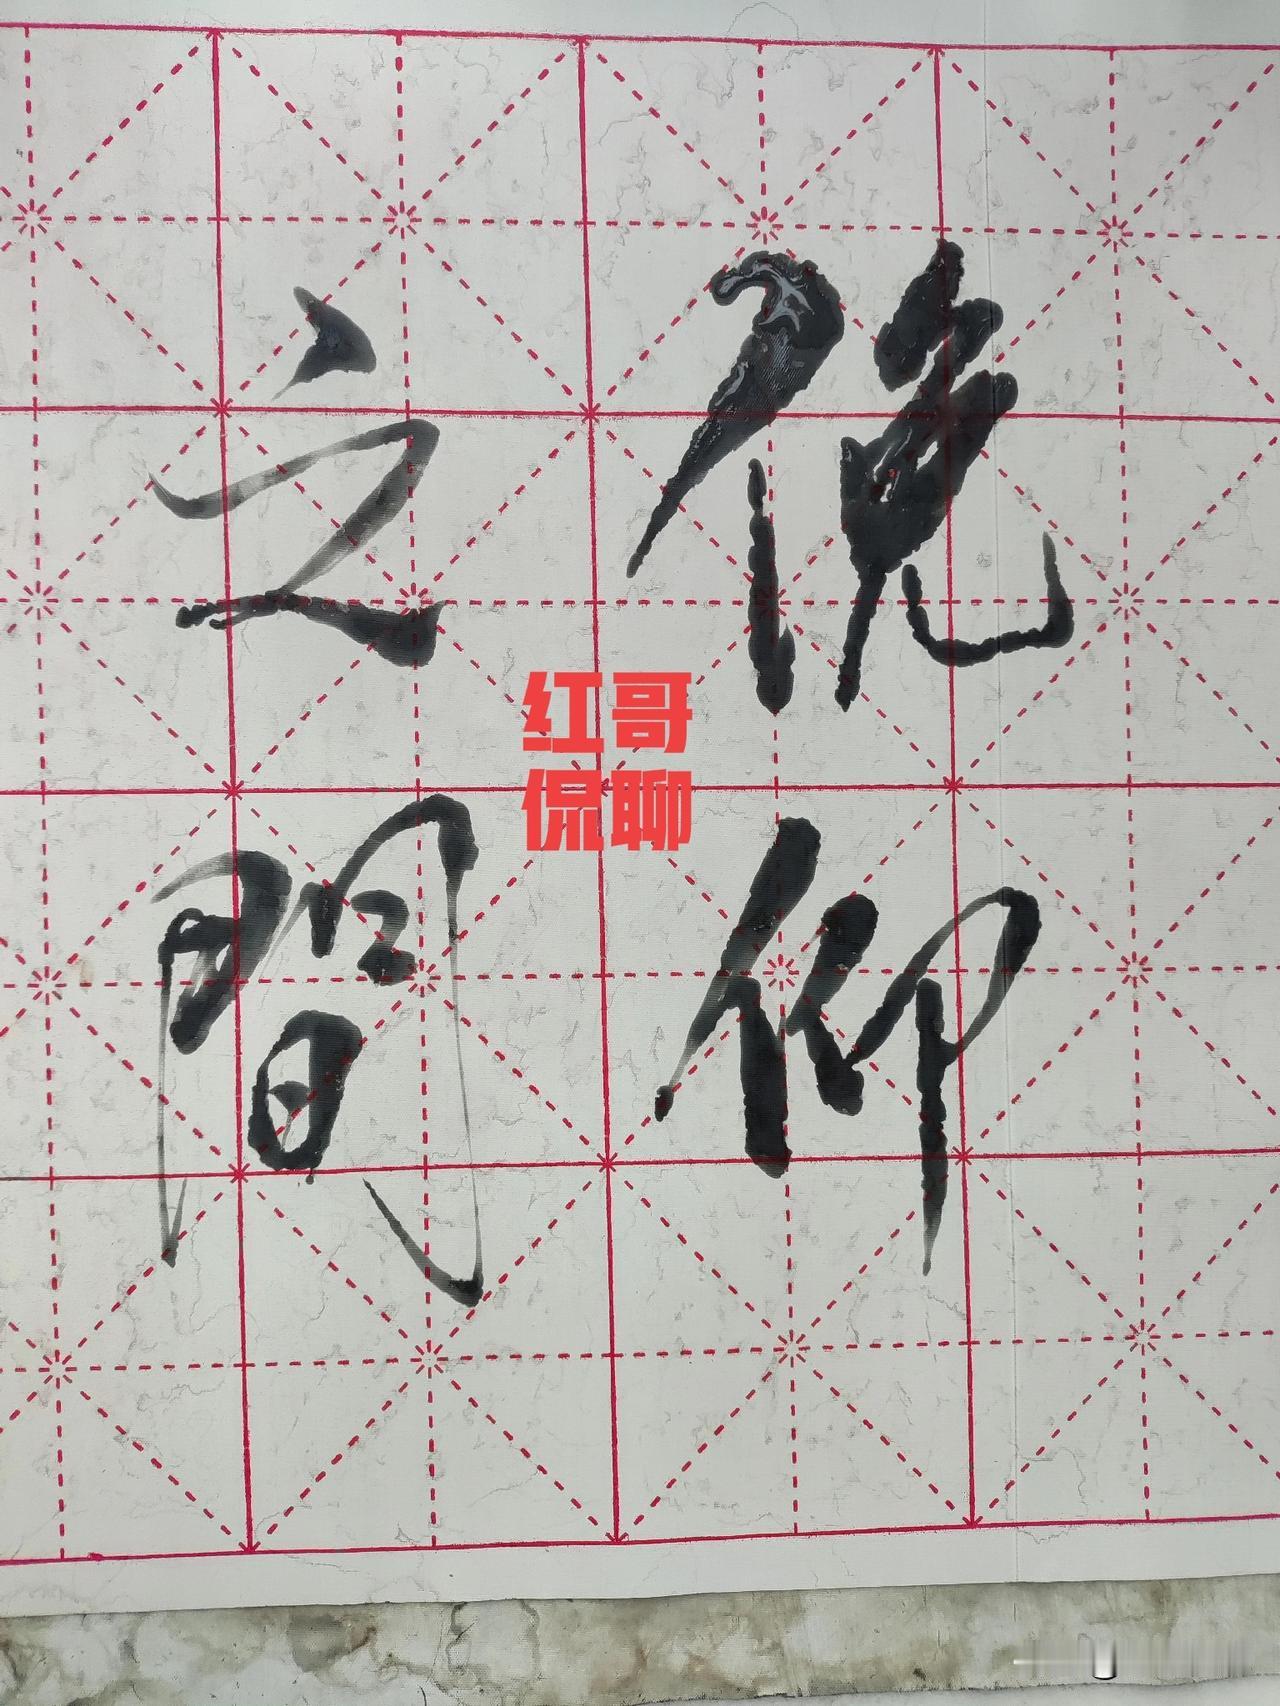 俛仰
之間
红哥
侃聊